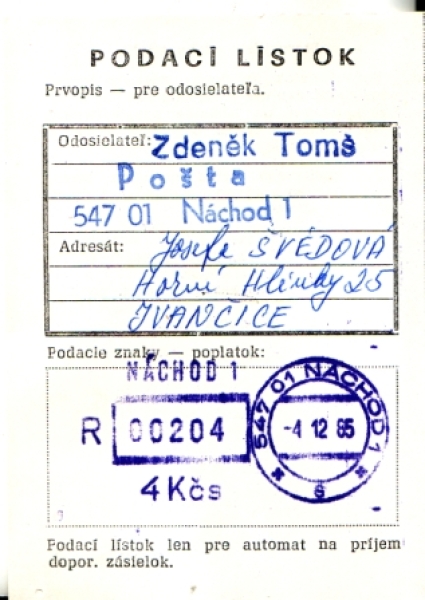 PODACÍ LÍSTOK
Prvopis — pre odosielateľa.
Odosielateľ: Zdeněk Tomš
Pošta
547 01 Náchod 1
Adresát: Josefa ŠVÉDOVÁ
Horní Hlinky 25
IVANČICE
Podacie znaky — poplatok:
NÁCHOD 1
R 00204
4 Kčs
547 01 NÁCHOD 1
-4 12 85
š
Podací lístok len pre automat na príjem
dopor. zásielok.